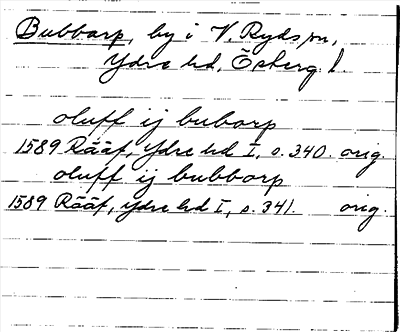 Bubbarp, by i V. Ryds sn,
Ydre hd, Österg. l.
oluff ij bubarp
1589 Rääf, Ydre hd I, s. 340. orig.
oluff ij bubbarp
1589 Rääf, Ydre hd I, s. 341. orig.